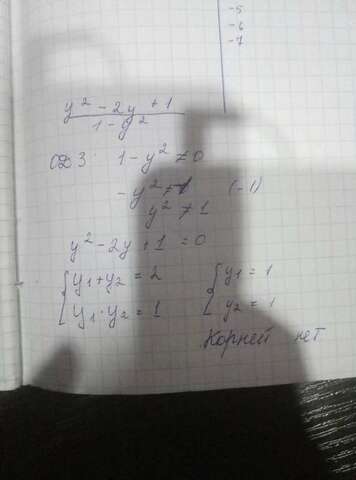 -5
-6
-7
y² - 2y + 1
1 - y²
ОДЗ: 1 - y² ≠ 0
-y² ≠ -1 (-1)
y² ≠ 1
y² - 2y + 1 = 0
{ y₁ + y₂ = 2 { y₁ = 1
y₁ · y₂ = 1 y₂ = 1
Корней нет